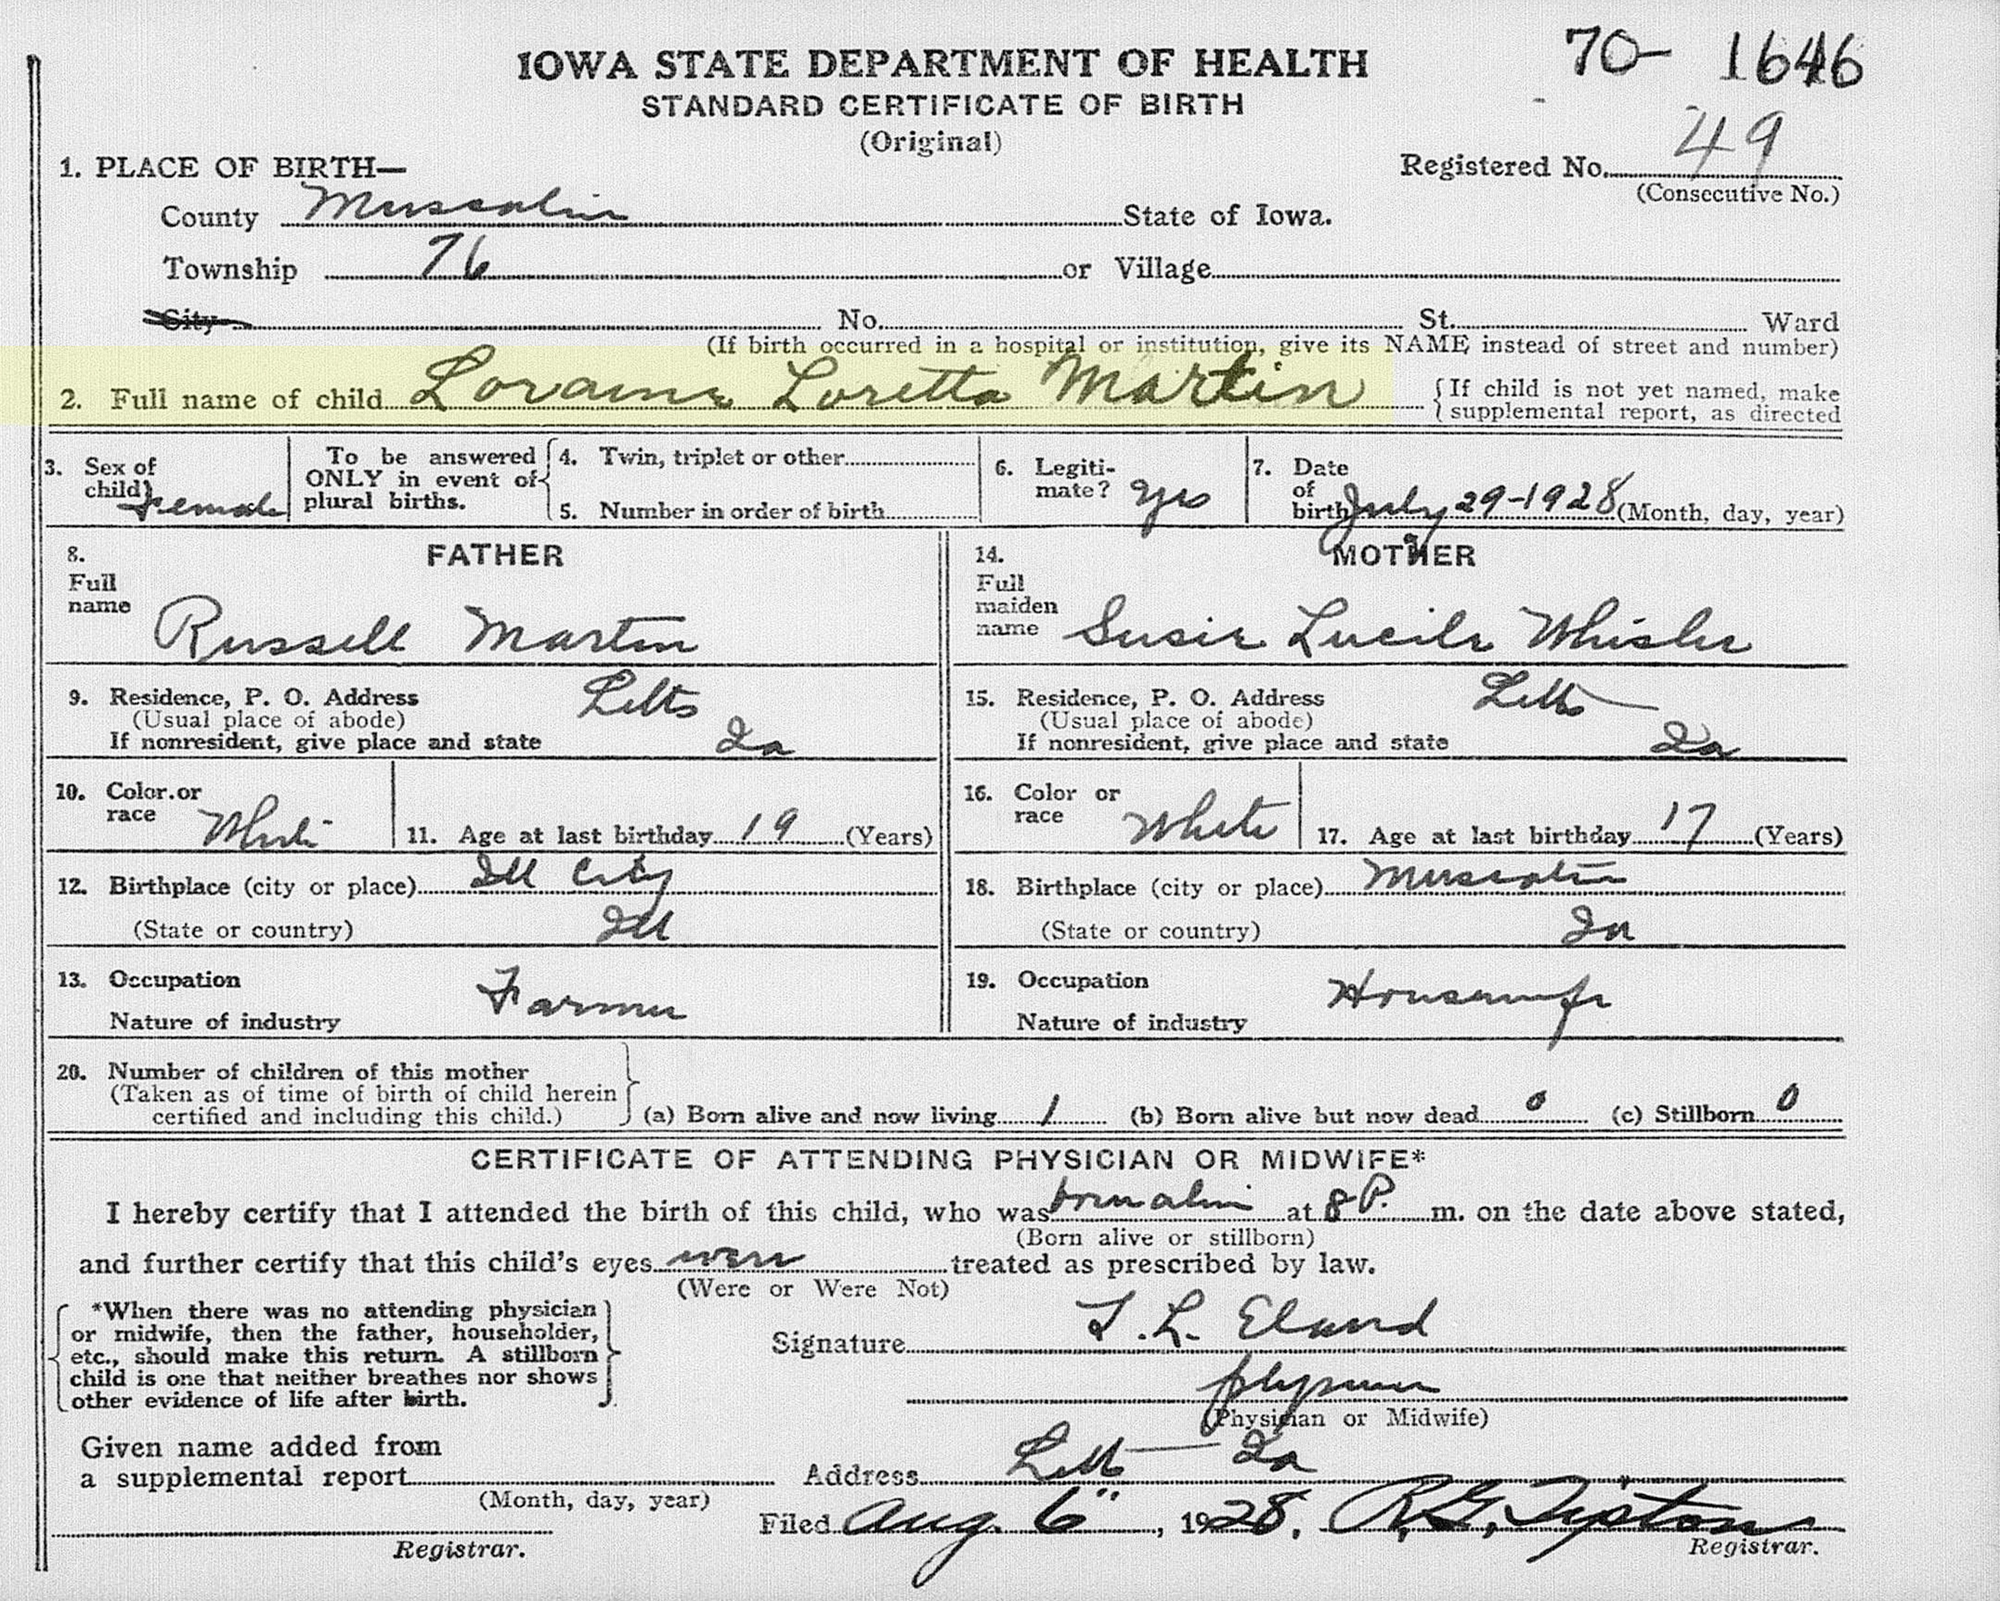 70- 1646
IOWA STATE DEPARTMENT OF HEALTH
STANDARD CERTIFICATE OF BIRTH
(Original)
1. PLACE OF BIRTH—
Registered No. 49
(Consecutive No.)
County Muscatine State of Iowa.
Township 76 or Village
City No. St. Ward
(If birth occurred in a hospital or institution, give its NAME instead of street and number)
2. Full name of child Loraine Loretta Martin {If child is not yet named, make
supplemental report, as directed
3. Sex of child} Female
To be answered
ONLY in event of
plural births.
4. Twin, triplet or other
5. Number in order of birth
6. Legiti-
mate? yes
7. Date
of
birth July 29-1928 (Month, day, year)
8. FATHER
Full
name Russell Martin
14. MOTHER
Full
maiden
name Susie Lucile Whisler
9. Residence, P. O. Address Letts
(Usual place of abode)
If nonresident, give place and state Ia
15. Residence, P. O. Address Letts
(Usual place of abode)
If nonresident, give place and state Ia
10. Color or
race White
11. Age at last birthday 19 (Years)
16. Color or
race White
17. Age at last birthday 17 (Years)
12. Birthplace (city or place) Ill City
(State or country) Ill
18. Birthplace (city or place) Muscatine
(State or country) Ia
13. Occupation Farmer
Nature of industry
19. Occupation Housewife
Nature of industry
20. Number of children of this mother
(Taken as of time of birth of child herein
certified and including this child.)
(a) Born alive and now living 1 (b) Born alive but now dead 0 (c) Stillborn 0
CERTIFICATE OF ATTENDING PHYSICIAN OR MIDWIFE*
I hereby certify that I attended the birth of this child, who was born alive at 8 P. m. on the date above stated,
(Born alive or stillborn)
and further certify that this child's eyes were treated as prescribed by law.
(Were or Were Not)
*When there was no attending physician
or midwife, then the father, householder,
etc., should make this return. A stillborn
child is one that neither breathes nor shows
other evidence of life after birth.
Signature L. Eland
physician
(Physician or Midwife)
Given name added from
a supplemental report
(Month, day, year)
Registrar.
Address Letts Ia
Filed Aug. 6", 1928. R. G. Tipton
Registrar.